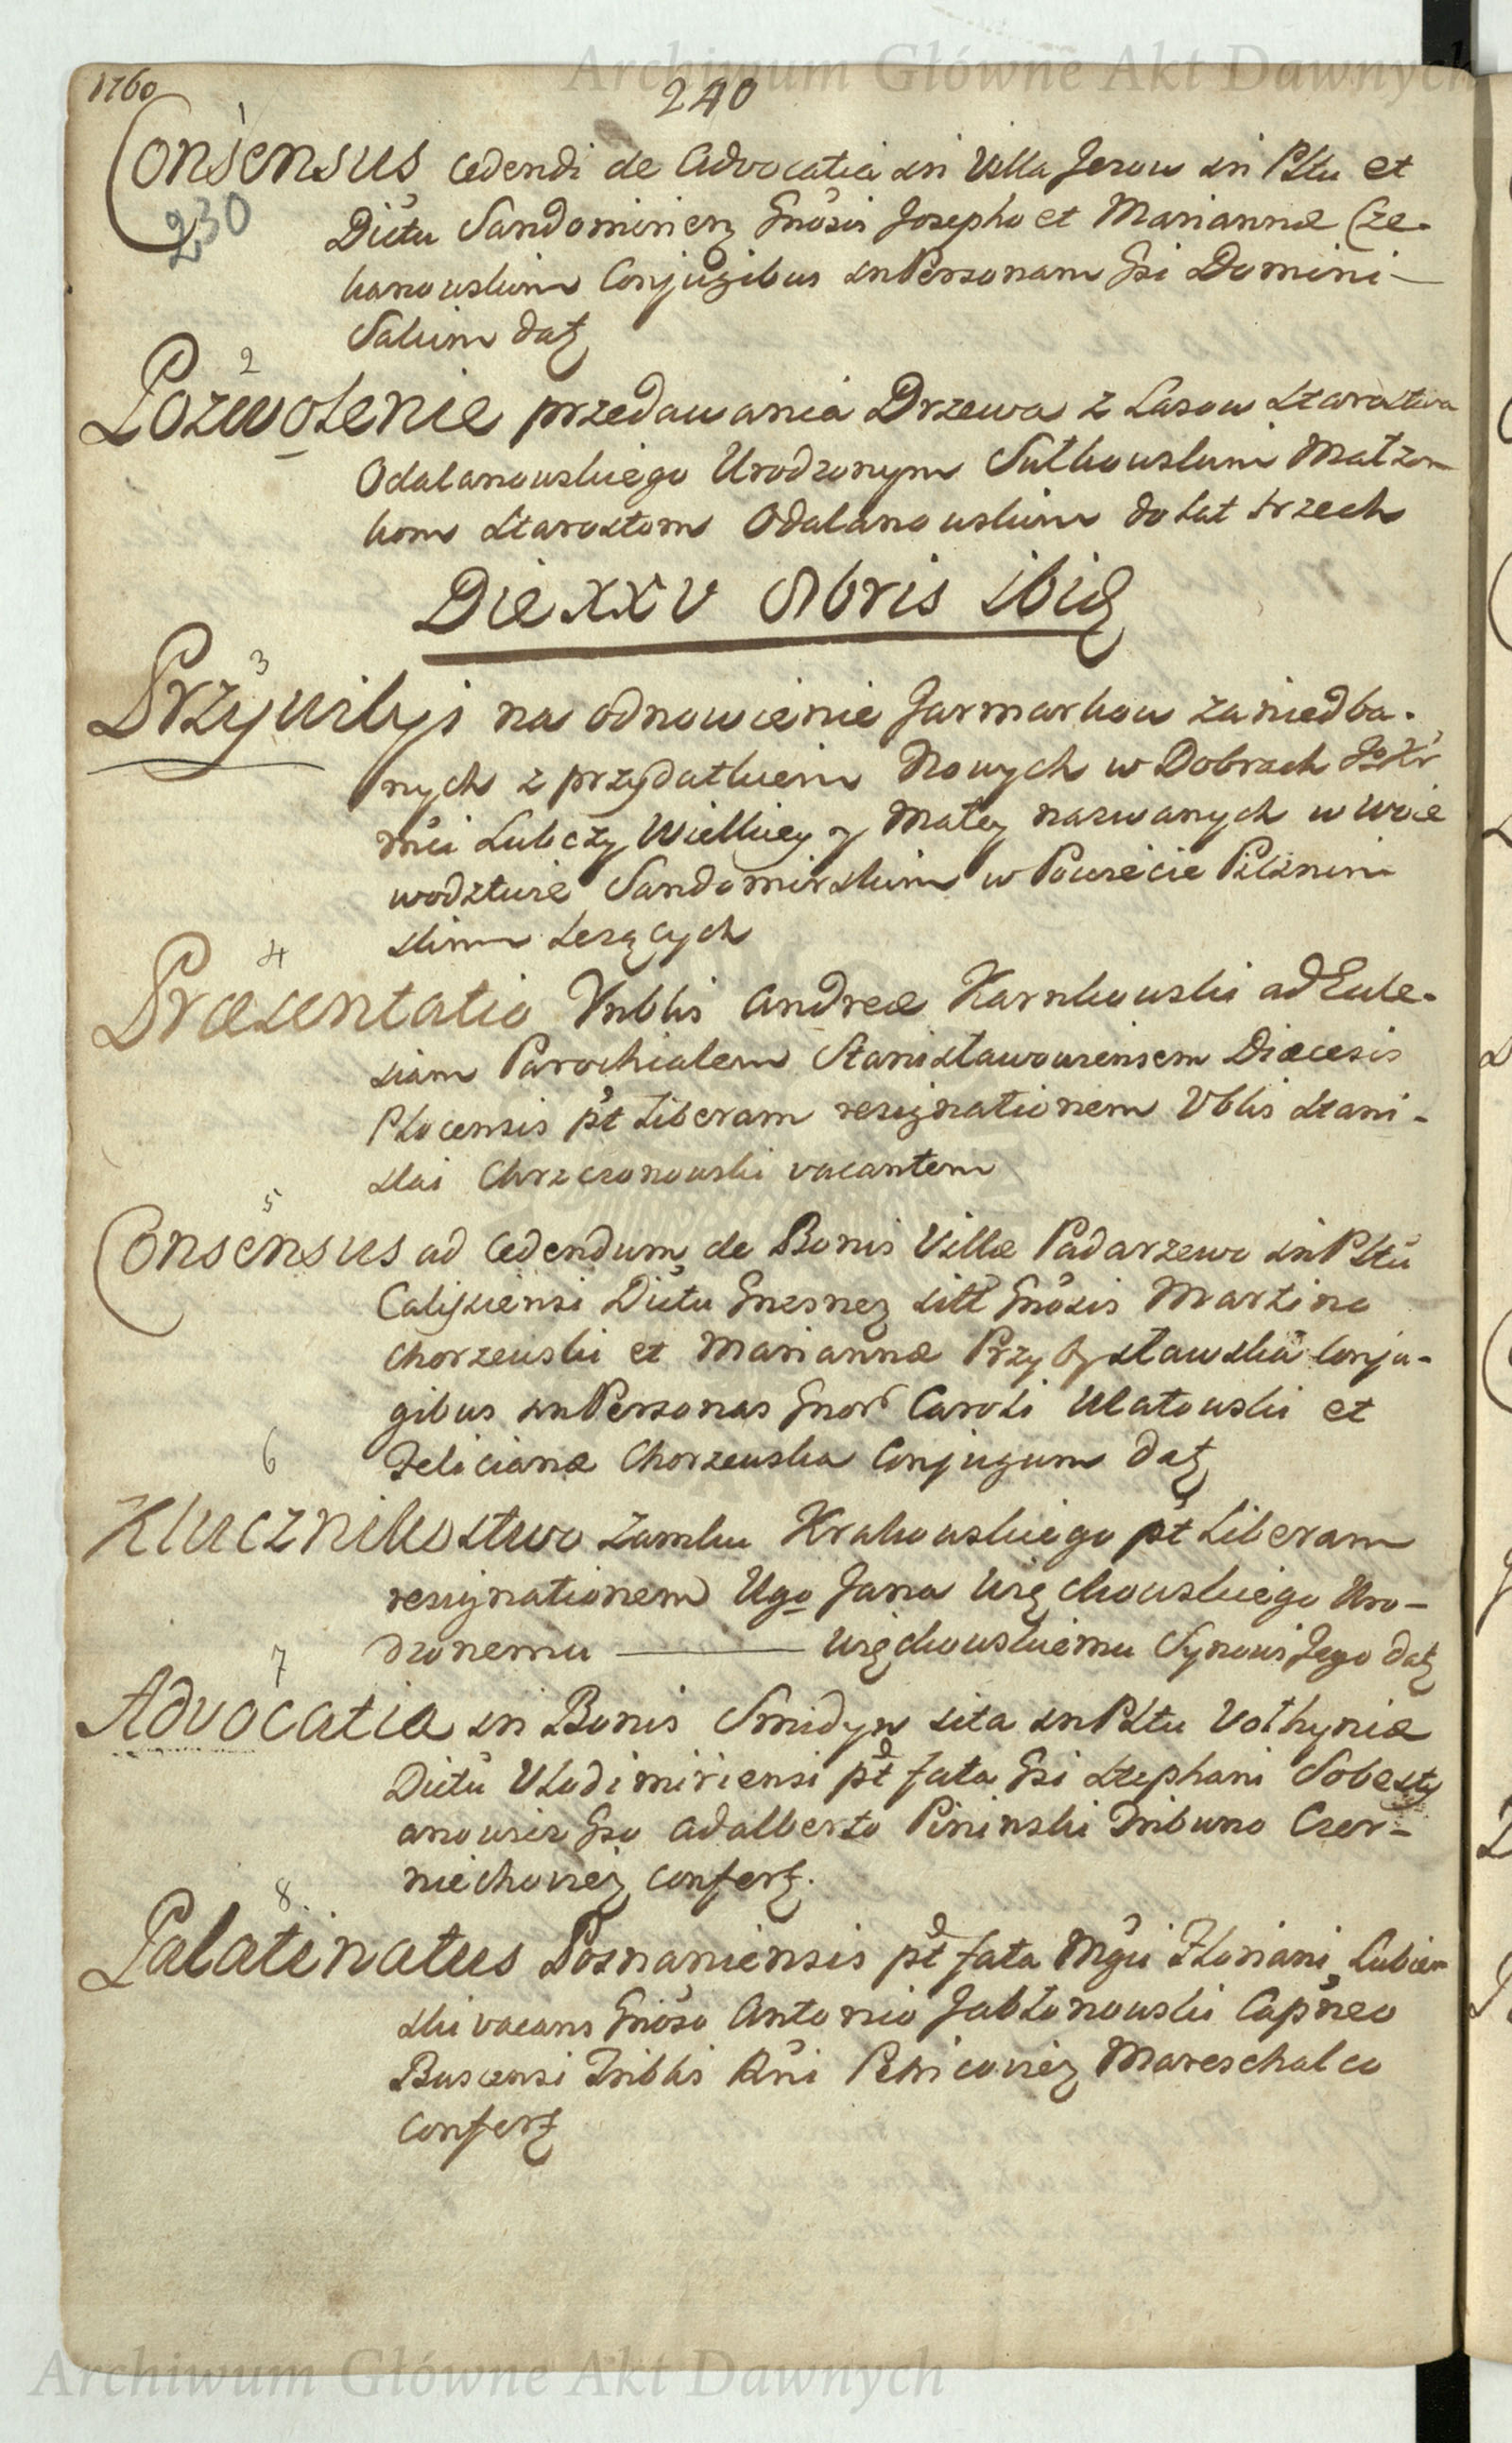 Archiwum Główne Akt Dawnych
1760
240
1
Consensus cedendi de Advocatia in Villa Jezow in Pttu et
230
Dictu Sandomirien Gnosis Josepho et Mariannæ Cze-
kanowskim Conjugibus in Personam Gsi Domini-
Salum datz
2
Pozwolenie przedawania Drzewa z Lasow Starostwa
Odalanowskiego Urodzonym Sułkowskim Małzon
kom Starostom Odalanowskim do lat trzech
Die XXV 8bris ibid
3
Przywiley na odnowienie Jarmarkow zaniedba-
nych z przydatkiem Nowych w Dobrach JoKr
mci Lubczy Wielkiey y Małey nazwanych w Woie
wodztwie Sandomirskim w Powiecie Pilznin
skim lezących
4
Præsentatio Vnblis Andreæ Karnkowski ad Eccle-
siam Parochialem Stanisławowiensem Diæcesis
Plocensis pt liberam resignationem Vblis Stani-
slai Chrzczonowski vacantem
5
Consensus ad Cedendum de Bonis Villæ Padarzewo in Pttu
Calisiensi Dictu Gnesnen sitt Gnosis Martino
Chorzewski et Mariannæ Przybysławska Conju-
gibus in Personas Gnor Caroli Ulatowski et
Felicianæ Chorzewska Conjugum datz
6
Klucznikostwo Zamku Krakowskiego pt liberam
resignationem Ugo Jana Więckowskiego Uro-
dzonemu ——— Więckowskiemu Synowi Jego datz
7
Advocatia in Bonis Smidyn sita in Pttu Volhyniæ
Dictu Vlodimiriensi pt fata Gsi Stephani Sobesty
anowicz Gso Adalberto Pininski Tribuno Czer-
niechovien confertz.
8
Palatinatus Posnaniensis pt fata Mgci Floriani Lubien
ski vacans Gnoso Antonio Jabłonowski Capneo
Buscensi Tribblis Rni Petricovien Mareschalco
Confertz
Archiwum Główne Akt Dawnych